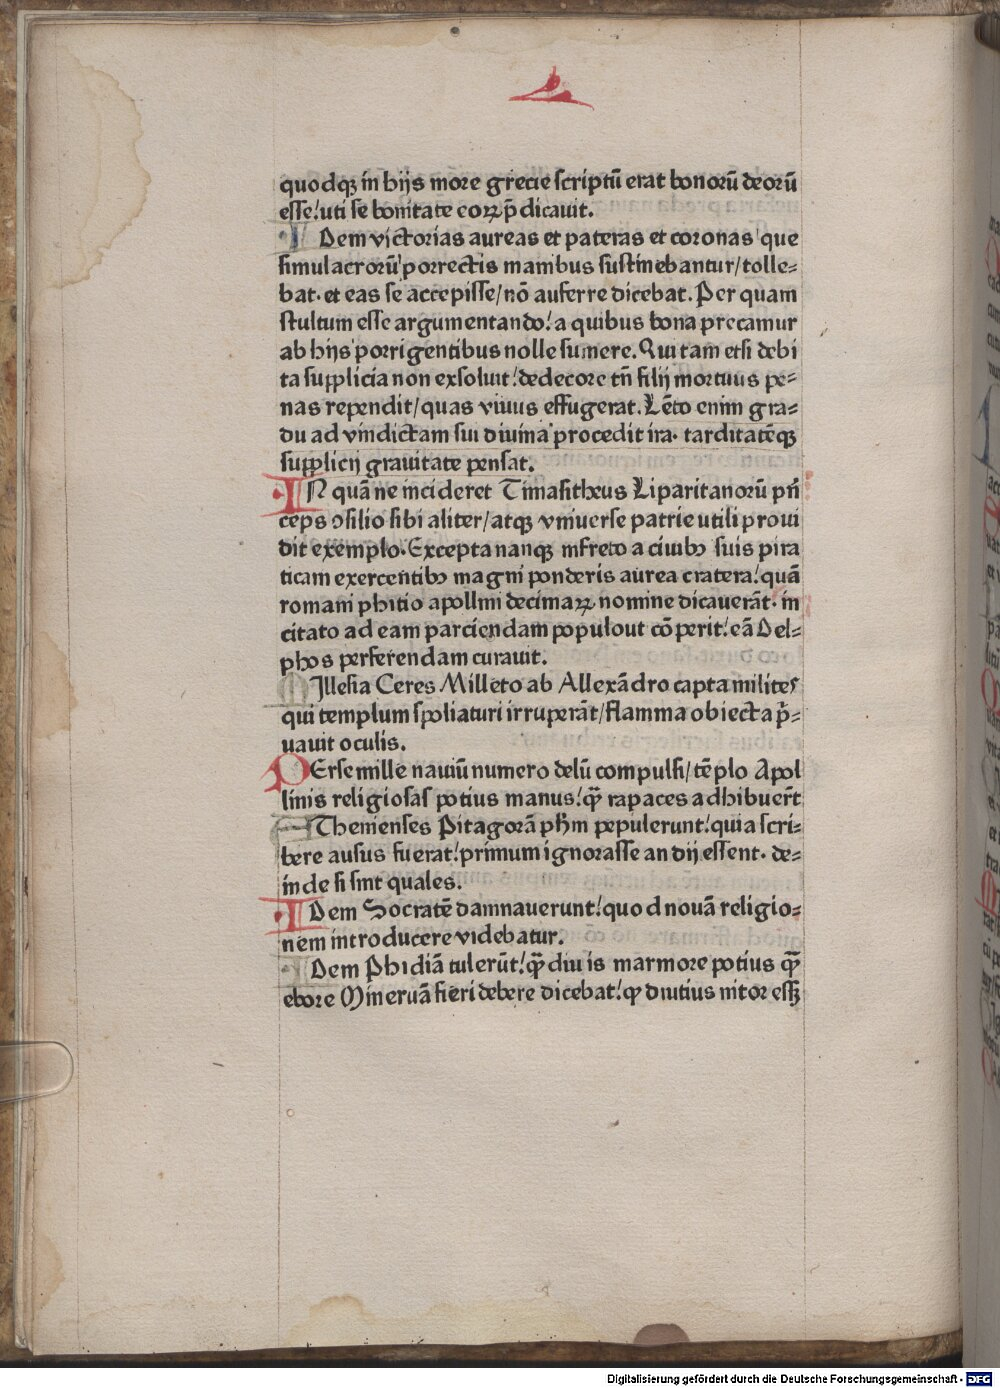 quodqꝫ in hijs more grecie scriptū erat bonorū deorū
esse! uti se bonitate eoꝝ p̄dicauit.
IDem victorias aureas et pateras et coronas que
simulacrorū porrectis manibus sustinebantur/tolle⸗
bat. et eas se accepisse/nō auferre dicebat. Per quam
stultum esse argumentando! a quibus bona precamur
ab hijs porrigentibus nolle sumere. Qui tam etsi debi
ta supplicia non exsoluit! dedecore tñ filij mortuus pe⸗
nas rependit/quas viuus effugerat. Lēto enim gra⸗
du ad vindictam sui diuina procedit ira. tarditatēqꝫ
supplicij grauitate pensat.
IN quā ne incideret Timasitheus Liparitanorū pñ
ceps ꝯsilio sibi aliter/atqꝫ vniuerse patrie utili proui
dit exemplo. Excepta nanqꝫ infreto a ciuibꝰ suis pira
ticam exercentibꝰ magni ponderis aurea cratera! quā
romani phitio apollini decimaꝝ nomine dicauerāt. in
citato ad eam parciendam populout cōperit! eā Del⸗
phos perferendam curauit.
MIlesia Ceres Milleto ab Allexādro capta milites
qui templum spoliaturi irruperāt/flamma obiecta p̄⸗
uauit oculis.
PErse mille nauiū numero delū compulsi/tēplo Apol
linis religiosas potius manus! qᷓ rapaces adhibuerēt
AThenienses Pitagorā phm̄ pepulerunt! quia scri⸗
bere ausus fuerat! primum ignorasse an dij essent. de⸗
inde si sint quales.
IDem Socratē damnauerunt! quod nouā religio⸗
nem introducere videbatur.
IDem Phidiā tulerūt! qᷓdiu is marmore potius qᷓ
ebore Mineruā fieri debere dicebat! ꝙ diutius nitor essꝫ
Digitalisierung gefördert durch die Deutsche Forschungsgemeinschaft - DFG